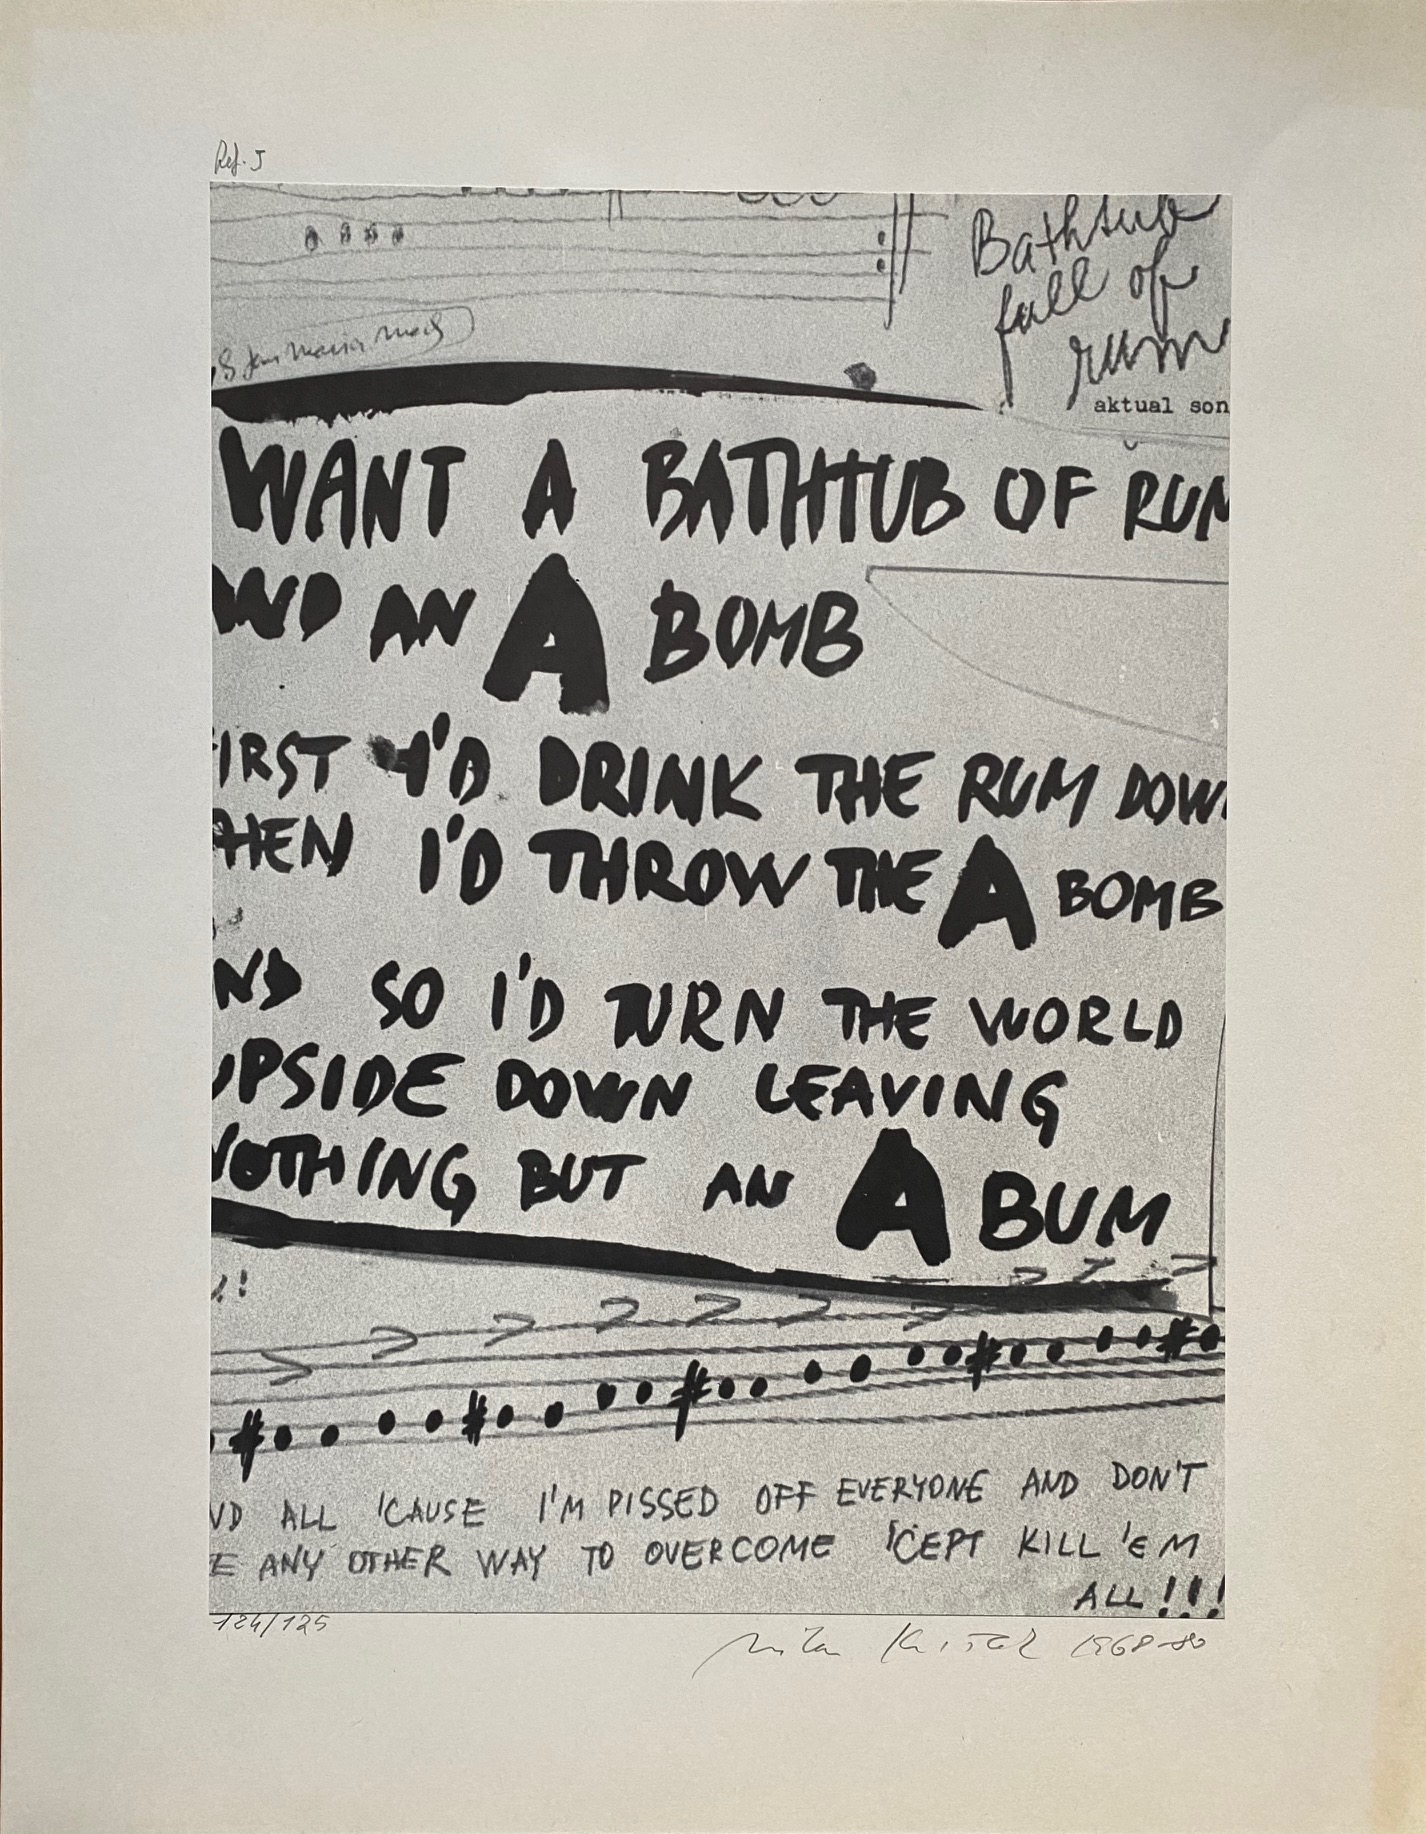 Ref. J
Bathtub
full of
rum
aktual son
WANT A BATHTUB OF RUM
AND AN A BOMB
FIRST I'D DRINK THE RUM DOWN
THEN I'D THROW THE A BOMB
AND SO I'D TURN THE WORLD
UPSIDE DOWN LEAVING
NOTHING BUT AN A BUM
ND ALL 'CAUSE I'M PISSED OFF EVERYONE AND DON'T
E ANY OTHER WAY TO OVERCOME 'CEPT KILL 'EM
ALL!!!
124/125
1968-80